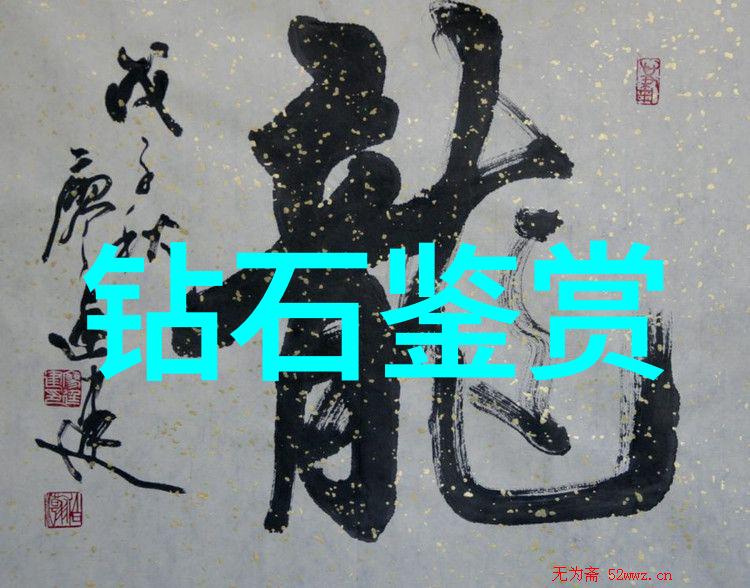 龍
戊子秋
钻石鉴赏
无为斋 52wwz.cn